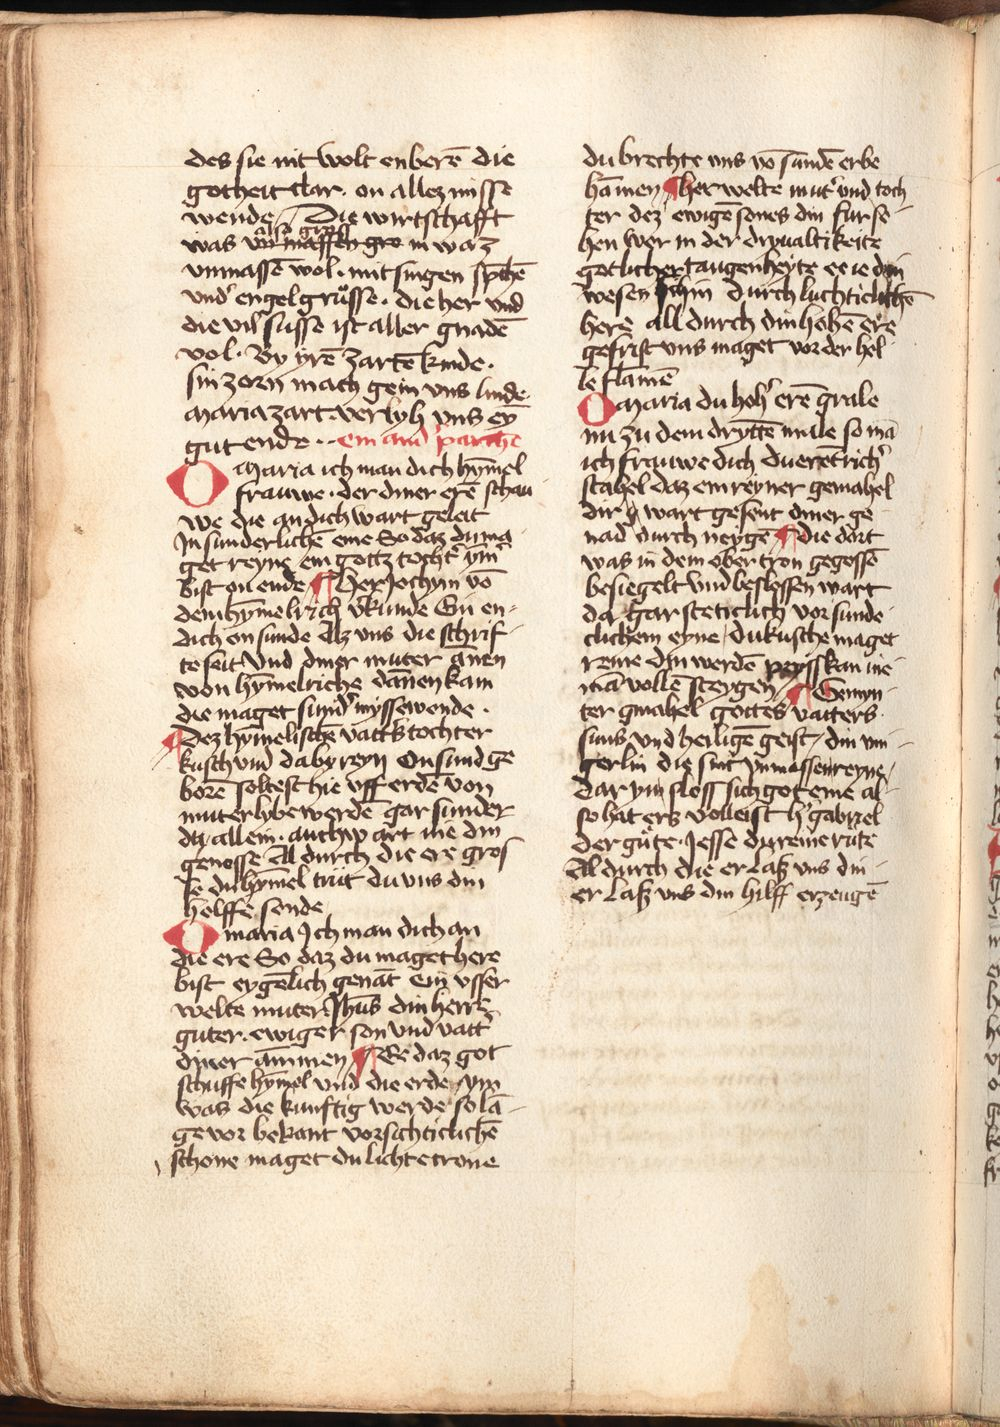 des sie nit wolt enberē die
gotheit clar · on allez misse
wende / Die wirtschafft
was vō massen gro in warz
also gross
vnmassē wol · mit singen spchē
vnd' engel grůsse · die her vnd
die vil susse ist aller gnadē
vol · By yrē zartē kinde ·
sin zorn mach gein vns linde ·
Maria zart · verlyh vns eȳ
gut ende · · ein and' parthe
O Maria ich man dich hȳmel
frauwe · der diner erē schau
we die an dich wart geleit
In sunderlichē eine So daz du ma
get reyne ein gottz tocht' ym'
bist on ende ¶ Der Jochym vō
dem hȳmelrich vkunde Gii en-
dich on sunde Alz vns die schrif-
te seit Vnd diner muter anen
von hȳmelriche dānen kam
die maget sund' myssewende ·
¶ Dez hȳmelischē vatt's tochter
kusch vnd da by reyn On sund ge
borē soltest hie vff erdē von
muterlybe werdē gar sunder
dū allein · auch wart nie din
genosse Al durch die ere gros
se du hȳmel trut du vns din
helffe sende
O maria Ich man dich an
die ere So daz du maget here
bist eygēlich genāt Ein vsser
welte muter Jhūs din herre
guter · ewiger son vnd vatt'
diner āmmen ¶ Ee daz got
schuffe hȳmel vnd die erde / ym
was die kunftig werde so lā-
ge vor bekant vorsichticlichē
schone maget du lichte crone
du brechte vns vō sundē erbe
hāmen ¶ her welte mut' vnd toch
ter dez ewigē sones din furse-
hen wer in der dryualtikeite
gotlicher taugenheyte ee ie din
wesen schin durch luchticlichē
here all durch din hohē ere
gefrist vns maget vor der hel-
le flamē
O Maria du hoh' erē grale
nu zu dem drytē male so mā
ich frauwe dich du erētrich'
stabel daz ein reyner gemahel
dir wart gesent diner ge
nad durch neygē ¶ die dort
was in dem obertron gegossē
besiegelt vnd beslossen wart
da gar steticlich vor sunde-
clichem eyne / du kusche maget
reine din werdē pryss kan nie
mā vollē steygen / ¶ Gemyn-
ter gmahel gottes vatters ·
suns vnd heiligē geist / din vin-
gerlin die sint vnmassen reyne /
dar yn sloss sich got eine al-
so hat erz volleist h' gabriel
der gůte · Jesse du reine růte
Al durch die er laß vns din-
er laß vns din hilff erzeugē